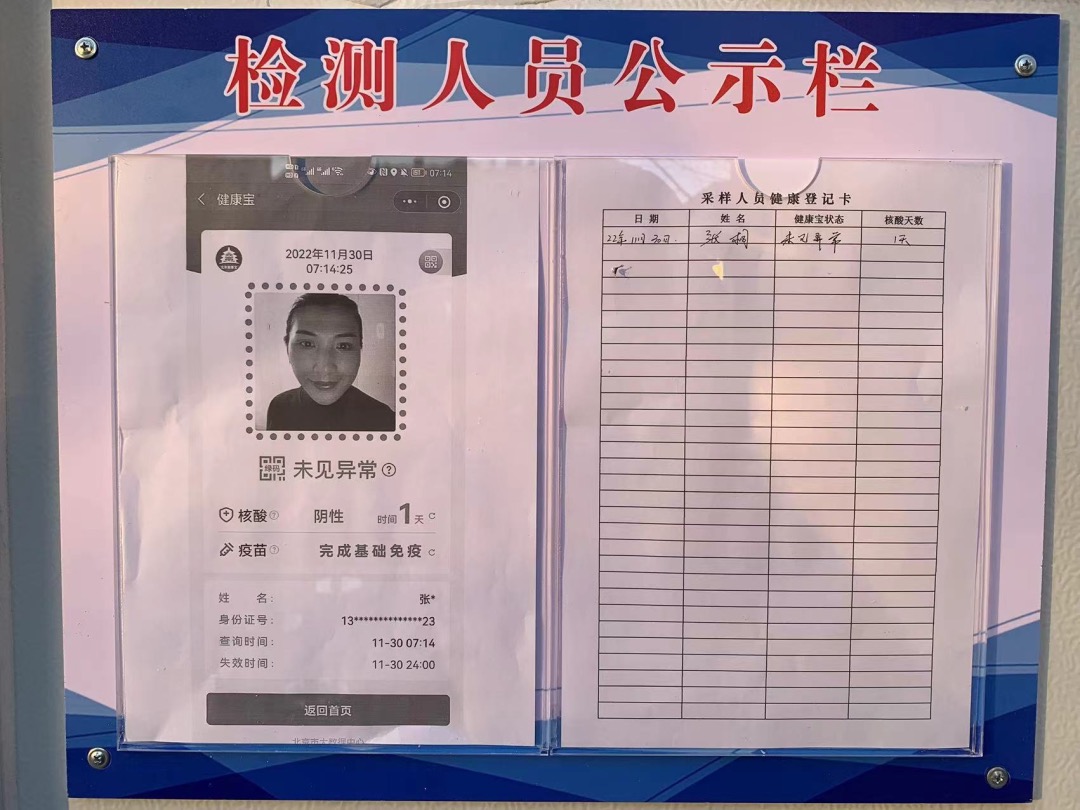 检测人员公示栏
07:14
健康宝
2022年11月30日
07:14:25
绿码
未见异常?
核酸? 阴性 时间1天
疫苗? 完成基础免疫
姓 名: 张*
身份证号: 13**************23
查询时间: 11-30 07:14
失效时间: 11-30 24:00
返回首页
采样人员健康登记卡
日 期 姓 名 健康宝状态 核酸天数
22年11月30日. 张 未见异常 1天